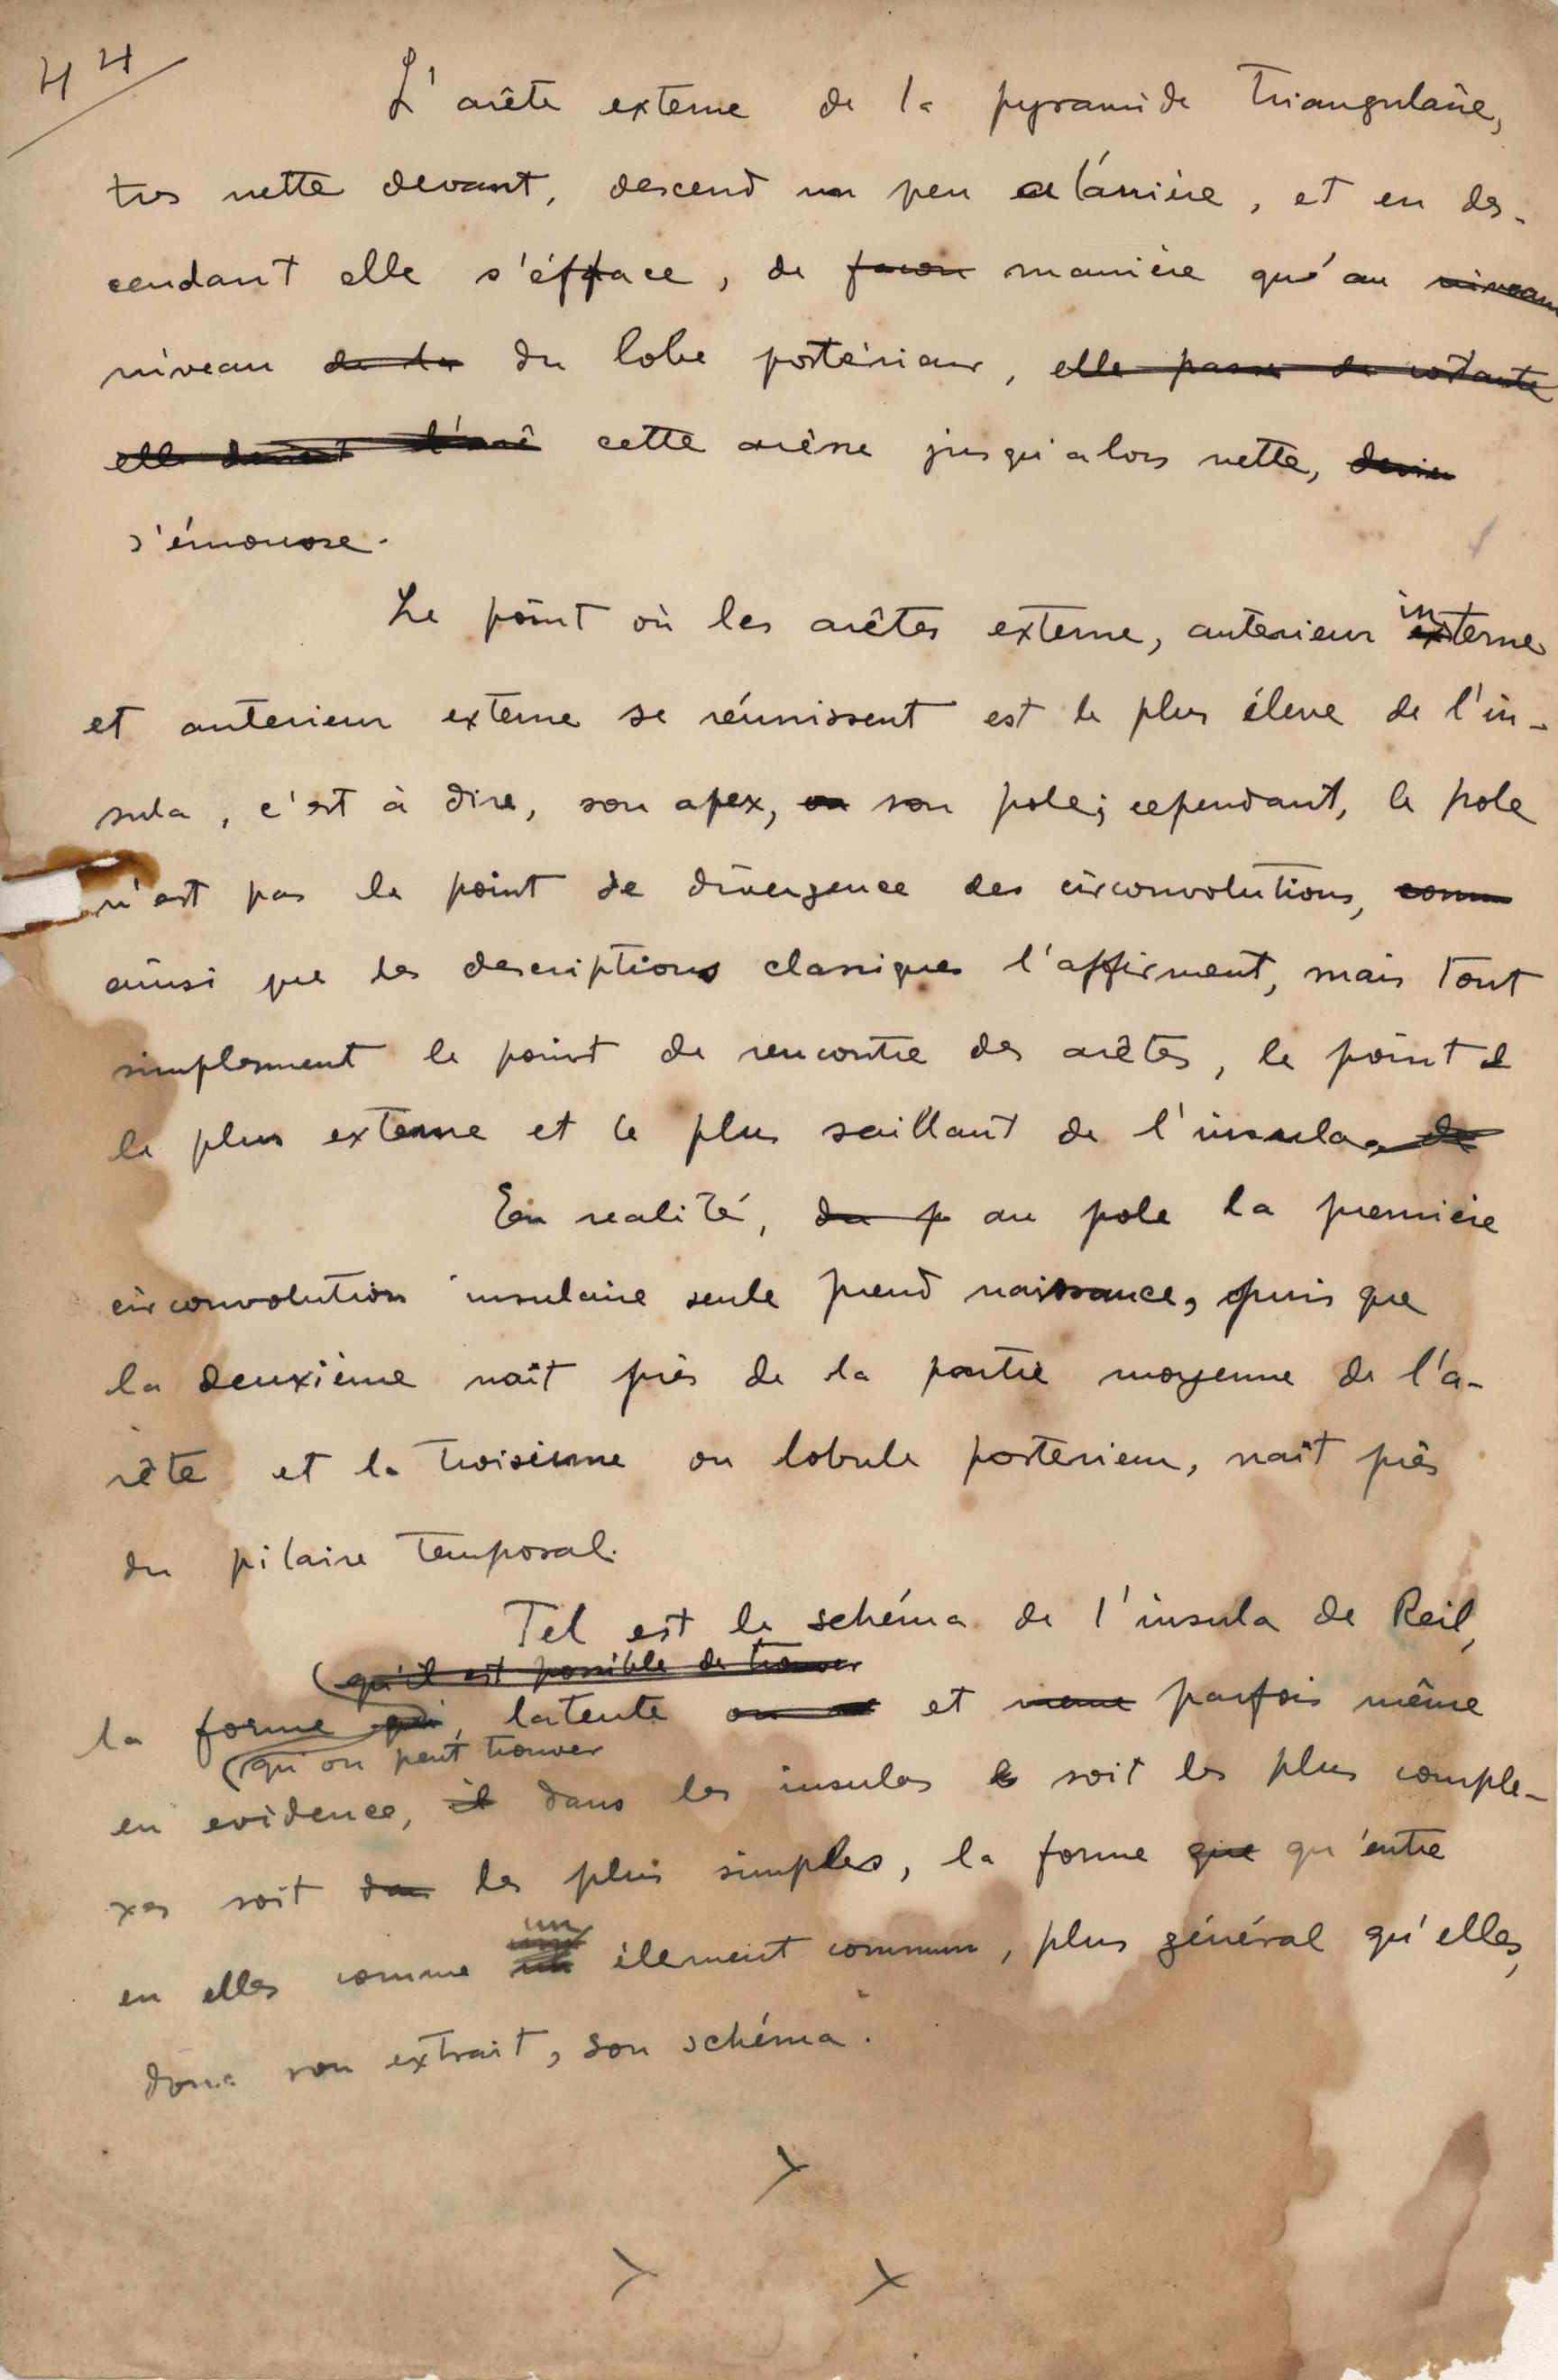 44
L'arête externe de la pyramide triangulaire,
tres nette devant, descend un peu a l'arrière, et en des-
cendant elle s'éfface, de façon manière qu'au niveau
niveau de la du lobe postérieur, elle passe de
elle devient l'arê cette arène jusqu'alors nette, devien
s'émousse.
Le point où les arêtes externe, anterieur interne
et anterieur externe se réunissent est le plus éleve de l'in-
sula, c'est à dire, son apex, ou son pole; cependant, le pole
n'est pas le point de divergence des circonvolutions, comm
ainsi que les descriptions classiques l'affirment, mais tout
simplement le point de rencontre des arêtes, le point
le plus externe et le plus saillant de l'insula. de
En realité, du p au pole la première
circonvolution insulaire seule prend naissance, puis que
la deuxième naît près de la partie moyenne de l'a-
rête et la troisieme ou lobule posterieur, naît près
du pilaire temporal.
Tel est le schéma de l'insula de Reil,
(qu'il est possible de trouver
la forme qui, latente ou et meme parfois même
(qu'on peut trouver
en evidence, il dans les insulas soit les plus comple-
xes soit dan les plus simples, la forme que qu'entre
un
en elles comme un élement commun, plus général qu'elles,
donc son extrait, son schéma.